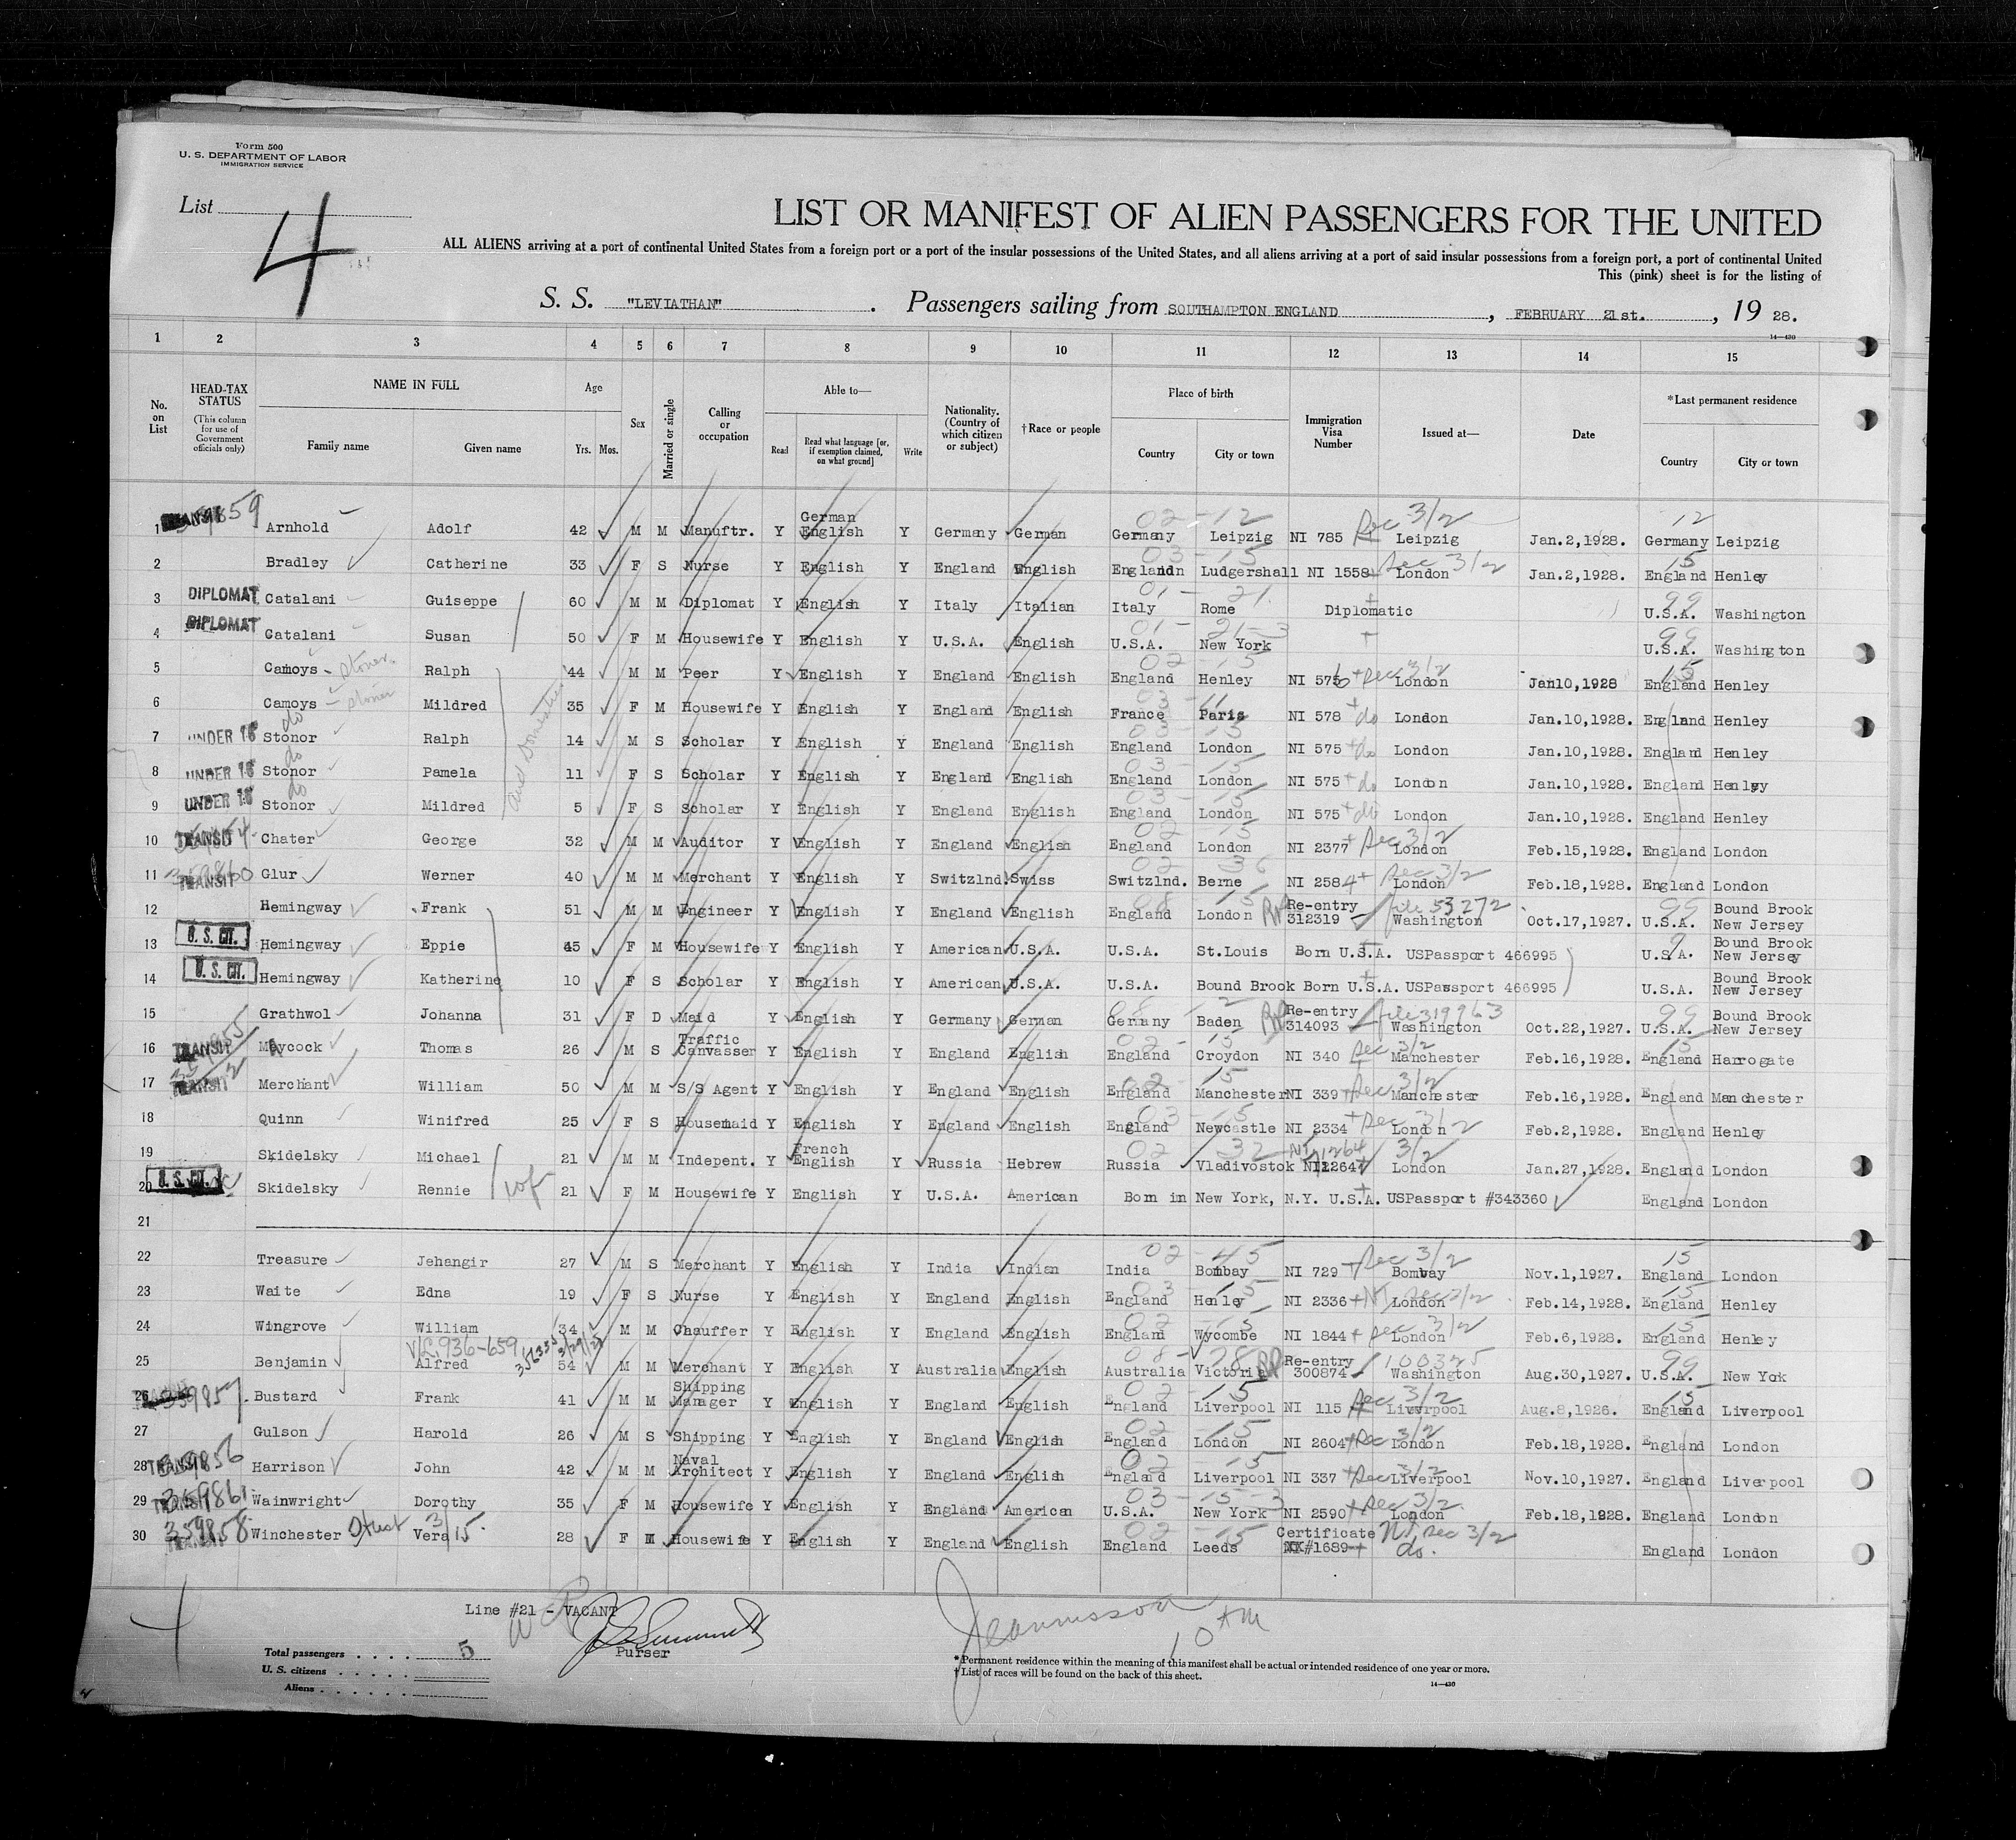 Form 500
U. S. DEPARTMENT OF LABOR
IMMIGRATION SERVICE
List 4
LIST OR MANIFEST OF ALIEN PASSENGERS FOR THE UNITED
ALL ALIENS arriving at a port of continental United States from a foreign port or a port of the insular possessions of the United States, and all aliens arriving at a port of said insular possessions from a foreign port, a port of continental United
This (pink) sheet is for the listing of
S. S. "LEVIATHAN". Passengers sailing from SOUTHAMPTON ENGLAND, FEBRUARY 21st., 19 28.
14—430
1 2 3 4 5 6 7 8 9 10 11 12 13 14 15
No. on List
HEAD-TAX STATUS (This column for use of Government officials only)
NAME IN FULL Family name Given name
Age Yrs. Mos.
Sex
Married or single
Calling or occupation
Able to— Read Read what language [or, if exemption claimed, on what ground] Write
Nationality. (Country of which citizen or subject)
†Race or people
Place of birth Country City or town
Immigration Visa Number
Issued at—
Date
*Last permanent residence Country City or town
1 TRANSIT 359859 Arnhold Adolf 42 M M Manuftr. Y German English Y Germany German 02-12 Germany Leipzig NI 785 Sec 3/2 Leipzig Jan.2,1928. 12 Germany Leipzig
2 Bradley Catherine 33 F S Nurse Y English Y England English 03-15 Englandn Ludgershall NI 1558 Sec 3/2 London Jan.2,1928. 15 England Henley
3 DIPLOMAT Catalani Guiseppe 60 M M Diplomat Y English Y Italy Italian 01-21 Italy Rome Diplomatic 99 U.S.A. Washington
4 DIPLOMAT Catalani Susan 50 F M Housewife Y English Y U.S.A. English 01-21-3 U.S.A. New York 99 U.S.A. Washington
5 Camoys - Stoner Ralph 44 M M Peer Y English Y England English 02-15 England Henley NI 576 Sec 3/2 London Jan10,1928 15 England Henley
6 Camoys - Stoner Mildred 35 F M Housewife Y English Y England English 03-11 France Paris NI 578 do London Jan.10,1928. England Henley
7 UNDER 16 do Stonor Ralph 14 M S Scholar Y English Y England English 03-15 England London NI 575 do London Jan.10,1928. England Henley
8 UNDER 16 do Stonor Pamela 11 F S Scholar Y English Y England English 03-15 England London NI 575 do London Jan.10,1928. England Henley
9 UNDER 16 do Stonor Mildred 5 F S Scholar Y English Y England English 03-15 England London NI 575 do London Jan.10,1928. England Henley
and Domestics
10 TRANSIT Chater George 32 M M Auditor Y English Y England English 02-15 England London NI 2377 Sec 3/2 London Feb.15,1928. England London
11 TRANSIT 359860 Glur Werner 40 M M Merchant Y English Y Switzlnd. Swiss 02 36 Switzlnd. Berne NI 2584 Sec 3/2 London Feb.18,1928. England London
12 Hemingway Frank 51 M M Engineer Y English Y England English 08-15 England London RP Re-entry 312319 file 53272 Washington Oct.17,1927. 99 U.S.A. Bound Brook New Jersey
13 U. S. CIT. Hemingway Eppie 45 F M Housewife Y English Y American U.S.A. U.S.A. St.Louis Born U.S.A. USPassport 466995 9 U.S.A. Bound Brook New Jersey
14 U. S. CIT. Hemingway Katherine 10 F S Scholar Y English Y American U.S.A. U.S.A. Bound Brook Born U.S.A. USPassport 466995 U.S.A. Bound Brook New Jersey
15 Grathwol Johanna 31 F D Maid Y English Y Germany German 08-2 Germany Baden RP Re-entry 314093 file 319963 Washington Oct.22,1927. 99 U.S.A. Bound Brook New Jersey
16 TRANSIT Maycock Thomas 26 M S Traffic Canvasser Y English Y England English 02-15 England Croydon NI 340 Sec 3/2 Manchester Feb.16,1928. 15 England Harrogate
17 TRANSIT Merchant William 50 M M S/S Agent Y English Y England English 02-15 England Manchester NI 339 Sec 3/2 Manchester Feb.16,1928. England Manchester
18 Quinn Winifred 25 F S Housemaid Y English Y England English 03-15 England Newcastle NI 2334 Sec 3/2 London Feb.2,1928. England Henley
19 Skidelsky Michael 21 M M Indepent. Y French English Y Russia Hebrew 02 32 Russia Vladivostok NI 1264 3/2 London Jan.27,1928. England London
20 U. S. CIT. Skidelsky Rennie wf 21 F M Housewife Y English Y U.S.A. American Born in New York, N.Y. U.S.A. USPassport #343360 England London
21
22 Treasure Jehangir 27 M S Merchant Y English Y India Indian 02-45 India Bombay NI 729 Sec 3/2 Bombay Nov.1,1927. 15 England London
23 Waite Edna 19 F S Nurse Y English Y England English 03-15 England Henley NI 2336 NI Sec 3/2 London Feb.14,1928. 15 England Henley
24 Wingrove William 34 M M Chauffer Y English Y England English 02-15 England Wycombe NI 1844 Sec 3/2 London Feb.6,1928. 15 England Henley
25 Benjamin V/L 936-659 Alfred 54 M M Merchant Y English Y Australia English 08-28 Australia Victoria RP Re-entry 300874 100325 Washington Aug.30,1927. 99 U.S.A. New York
26 359857 Bustard Frank 41 M M Shipping Manager Y English Y England English 02-15 England Liverpool NI 115 Sec 3/2 Liverpool Aug.8,1926. 15 England Liverpool
27 Gulson Harold 26 M S Shipping Y English Y England English 02-15 England London NI 2604 Sec 3/2 London Feb.18,1928. England London
28 TRANSIT 359856 Harrison John 42 M M Naval Architect Y English Y England English 02-15 England Liverpool NI 337 Sec 3/2 Liverpool Nov.10,1927. England Liverpool
29 TRANSIT 359861 Wainwright Dorothy 35 F M Housewife Y English Y England American 03-15-3 U.S.A. New York NI 2590 Sec 3/2 London Feb.18,1928. England London
30 TRANSIT 359858 Winchester Vera 3/15 28 F M Housewife Y English Y England English 02-15 England Leeds Certificate #1689 NI Sec 3/2 do. England London
Line #21 - VACANT
Purser
10 AM
Total passengers . . . . 5
U. S. citizens . . . . .
Aliens . . . . . .
* Permanent residence within the meaning of this manifest shall be actual or intended residence of one year or more.
† List of races will be found on the back of this sheet.
14—430